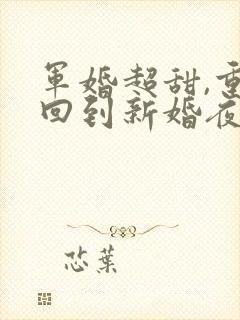 军婚超甜,重
回到新婚夜
芯葉